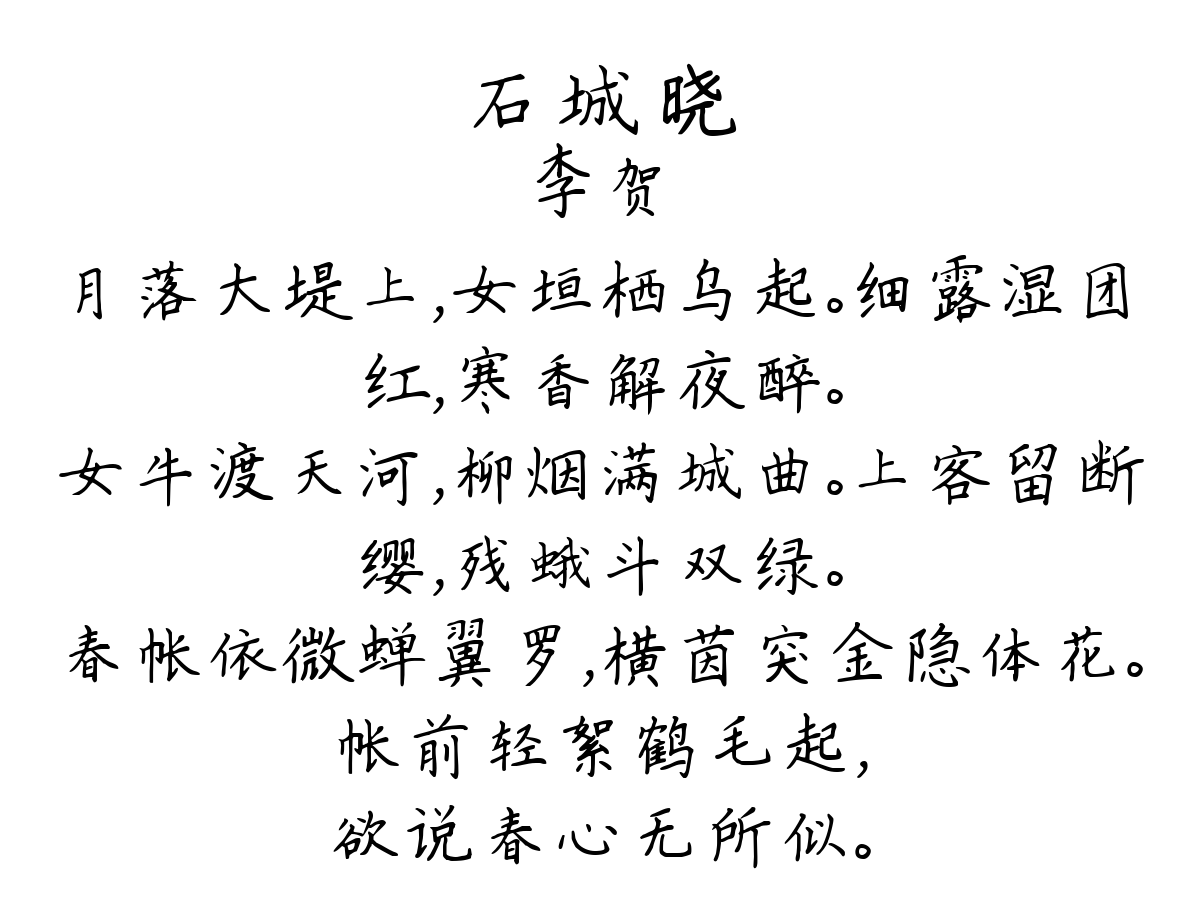 石城晓
李贺
月落大堤上,女垣栖乌起。细露湿团
红,寒香解夜醉。
女牛渡天河,柳烟满城曲。上客留断
缨,残蛾斗双绿。
春帐依微蝉翼罗,横茵突金隐体花。
帐前轻絮鹤毛起,
欲说春心无所似。